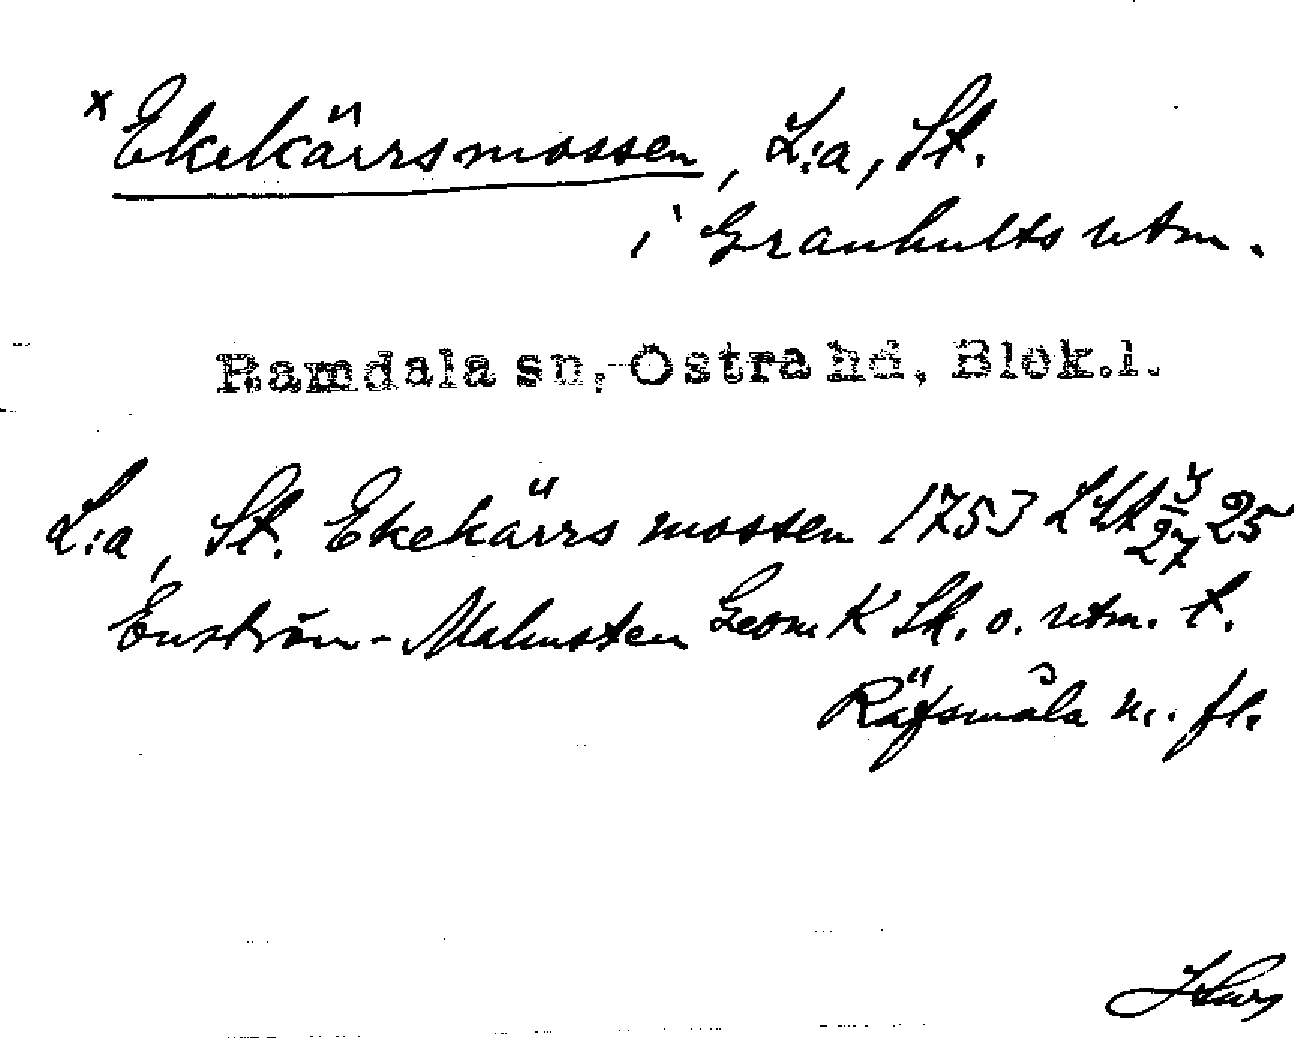 x Ekekärrsmossen, L:a, St.
i Granhults utm.
Ramdala sn, Östra hd, Blek.l.
L:a, St. Ekekärrs mossen 1753 LSA 25
Enström-Malmsten Geom K Sk. o. utm. t.
Räfsmåla m. fl.